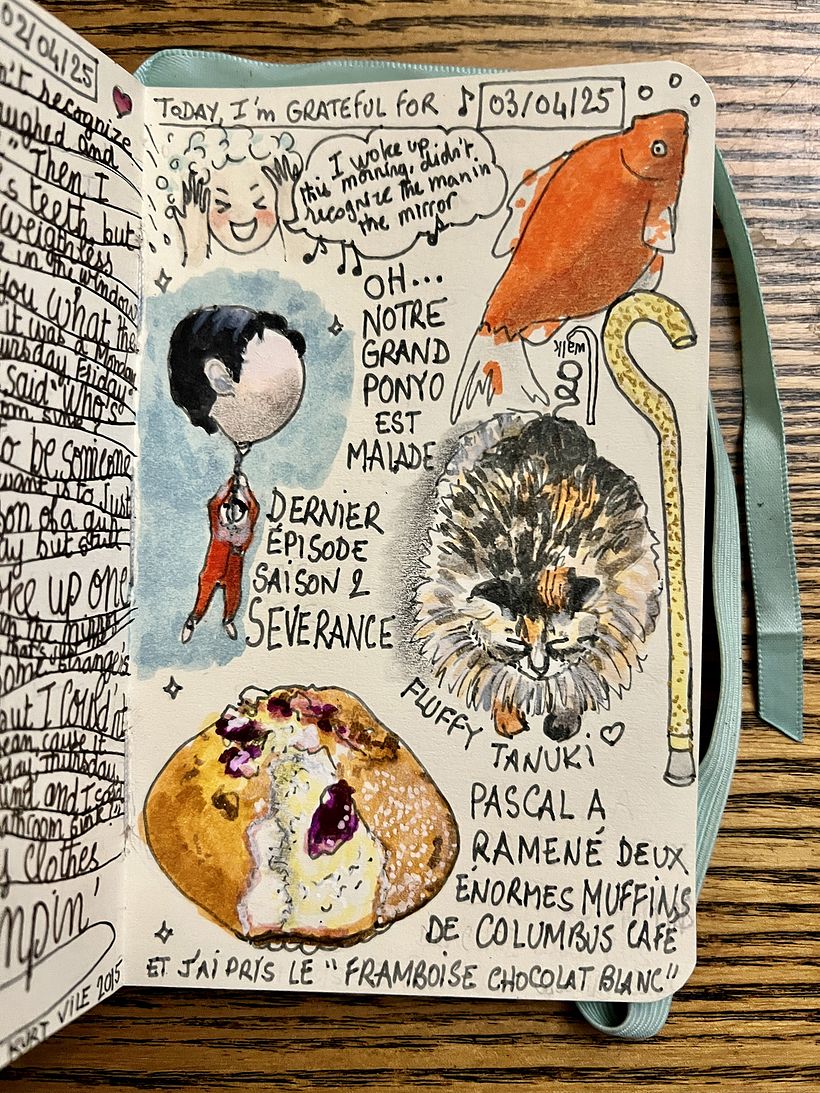 02/04/25
n't recognize
aughed and
" Then I
s teeth but
weightless
e in the window
you what the
it was a Monday
ursday Friday
said "who's
o be someone
want is to just
on of a gun
ay but still
oke up one
in the mirror
some stranger's
but I couldn't
ean, cause it
day, Thursday,
und and I said
athroom sink!"
s clothes
mpin'
KURT VILE 2015
TODAY, I'm GRATEFUL FOR
03/04/25
I woke up
this morning, didn't
recognize the man in
the mirror
OH...
NOTRE
GRAND
PONYO
EST
MALADE
walk
DERNIER
ÉPISODE
SAISON 2
SEVERANCE
FLUFFY TANUKI
PASCAL A
RAMENÉ DEUX
ÉNORMES MUFFINS
DE COLUMBUS CAFÉ
ET J'AI PRIS LE "FRAMBOISE CHOCOLAT BLANC"